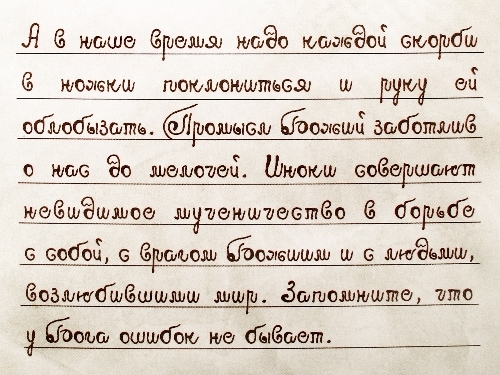 А в наше время надо каждой скорби
в ножки поклониться и руку ей
облобызать. Промысл Божий заботлив
о нас до мелочей. Иноки совершают
невидимое мученичество в борьбе
с собой, с врагом Божиим и с людьми,
возлюбившими мир. Запомните, что
у Бога ошибок не бывает.